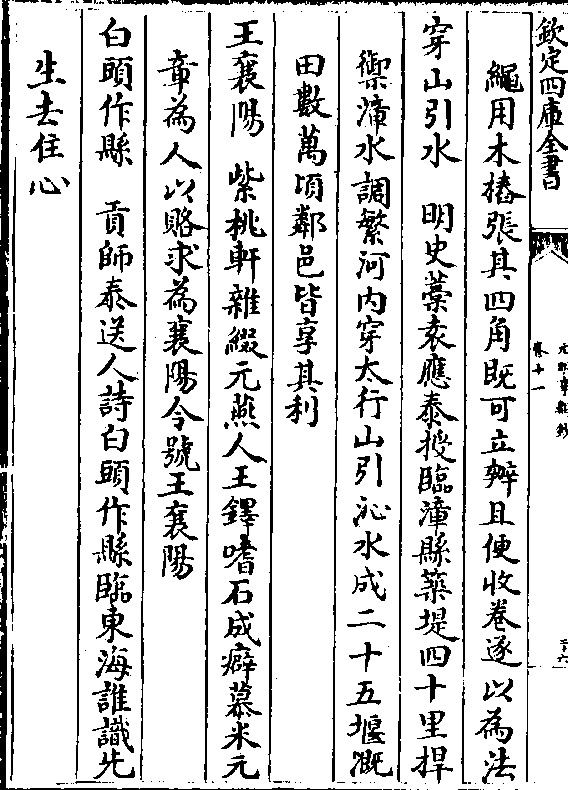 欽定四庫全書
元明事類鈔
卷十一
二十六
繩用木樁張其四角既可立辦且便收卷遂以為法
穿山引水　明史藁袁應泰授臨漳縣築堤四十里捍
禦漳水調繁河内穿太行山引沁水成二十五堰溉
田數萬頃鄰邑皆享其利
王襄陽　紫桃軒雜綴元燕人王鐸嗜石成癖慕米元
章為人以賂求為襄陽令號王襄陽
白頭作縣　貢師泰送人詩白頭作縣臨東海誰識先
生去住心